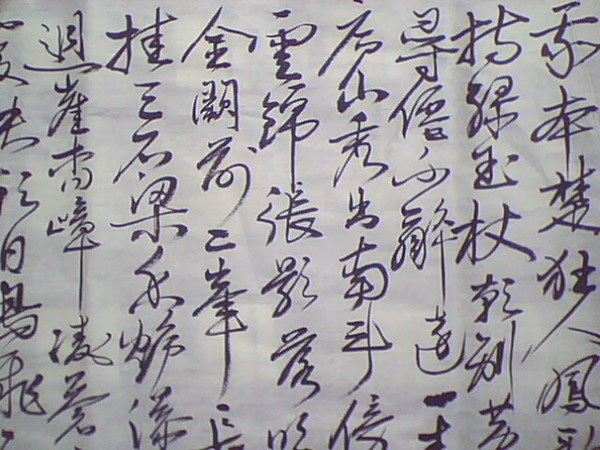 我本楚狂人鳳歌
持綠玉杖朝別黃
尋僊不辭遠一生
庐山秀出南斗傍
雲錦張影落明
金闕前二峯長
挂三石梁香爐瀑
迴崖沓嶂凌蒼
日鳥飛